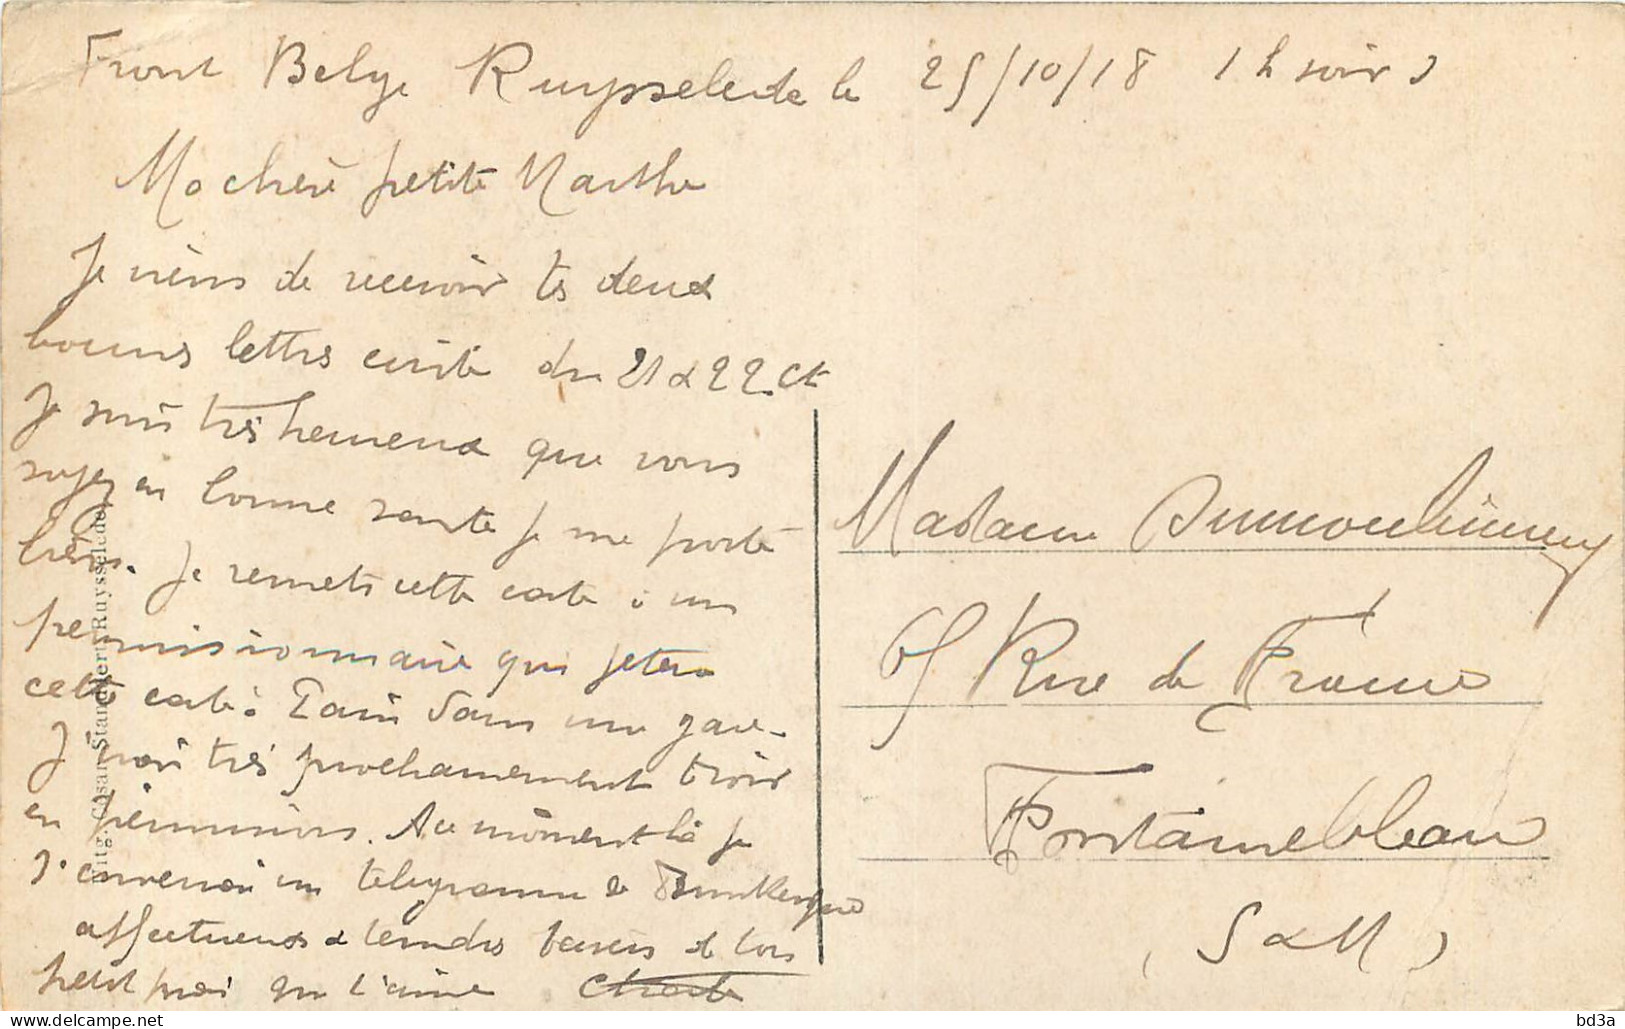 Front Belge Ruysselede le 25/10/18 1 h soir
Ma chère petite Marthe
Je viens de recevoir tes deux
bonnes lettres écrite du 21 & 22 ct
Je suis très heureux que vous
soyez en bonne santé je me porte
bien. Je remets cette carte à un
permissionnaire qui jetera
cette carte à Paris dans une gare.
J'irai très prochainement t'voir
en permission. Au moment là je
t'enverrai un télégramme de Dunkerque
affectueux & tendres baisers de ton
petit qui t'aime
Uitg. César Standaert Ruysselede
Madame
65 Rue de France
Fontainebleau
(S & M)
bd3a